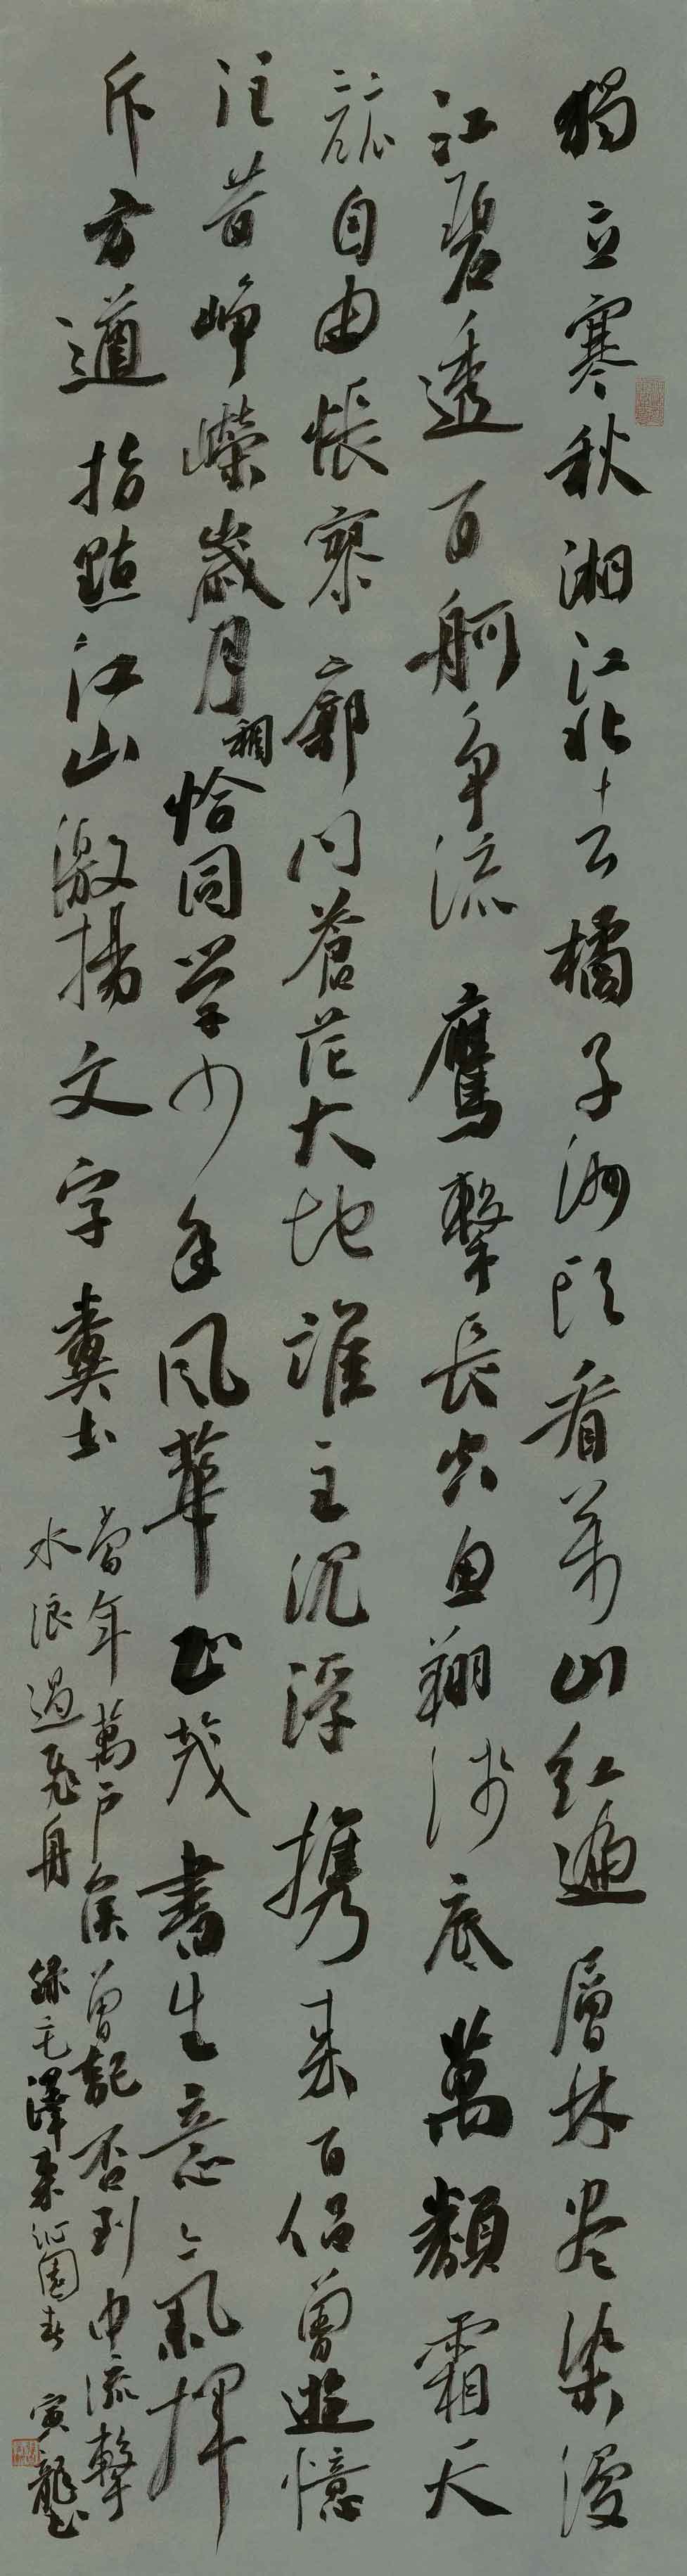 獨立寒秋湘江北去橘子洲頭看萬山紅遍層林盡染漫
江碧透百舸争流鷹擊長空魚翔淺底萬類霜天
競自由悵寥廓问蒼茫大地誰主沉浮携来百侣曾遊憶
往昔崢嶸歲月稠恰同学少年風華正茂書生意氣揮
斥方遒指點江山激揚文字糞土
當年萬户侯曾記否到中流擊
水浪遏飛舟 錄毛澤東沁園春 寅龍书